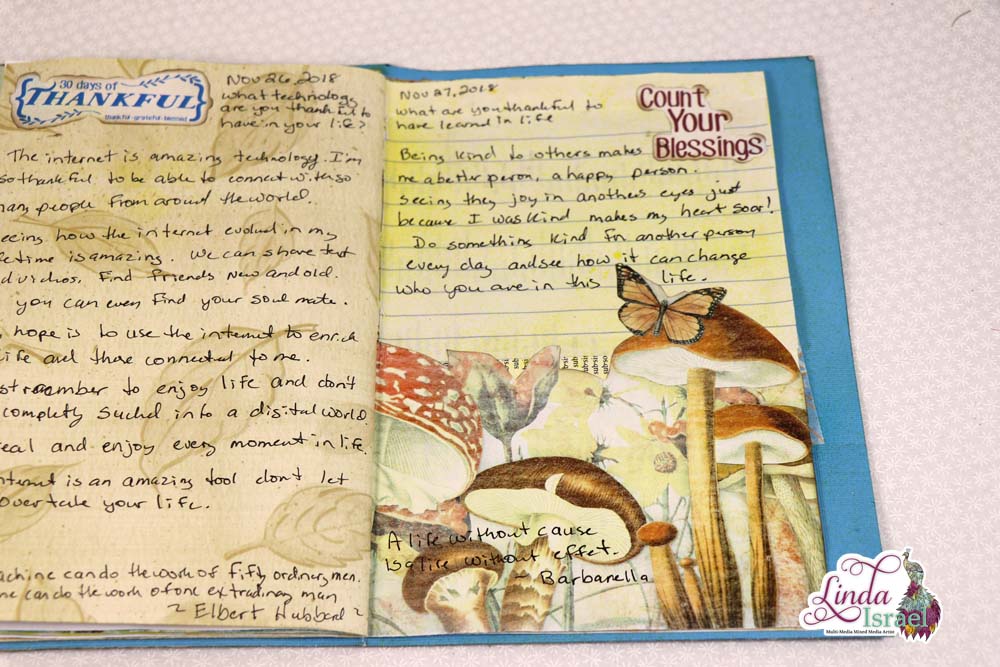 30 days of
THANKFUL
thankful·grateful·blessed
Nov 26, 2018
what technology
are you thankful to
have in your life?
The internet is amazing technology. I'm
so thankful to be able to connect with so
many people from around the world.
eeing how the internet evolved in my
fetime is amazing. We can share text
d videos. Find friends new and old.
you can even find your soul mate.
hope is to use the internet to enrich
life and those connected to me.
st remember to enjoy life and don't
completly sucked into a digital world.
eal and enjoy every moment in life.
nternet is an amazing tool don't let
overtake your life.
achine can do the work of fifty ordinary men.
ne can do the work of one extradinary man
~ Elbert Hubbard ~
Nov 27, 2018
what are you thankful to
have learned in life
Count
Your
Blessings
Being kind to others makes
me a better person, a happy person.
seeing they joy in anothers eyes just
because I was kind makes my heart soar!
Do something kind for another person
every day and see how it can change
who you are in this life.
sub·so
A life without cause
Is a life without effet.
- Barbarella
Linda
Israel
Multi-Media Mixed Media Artist